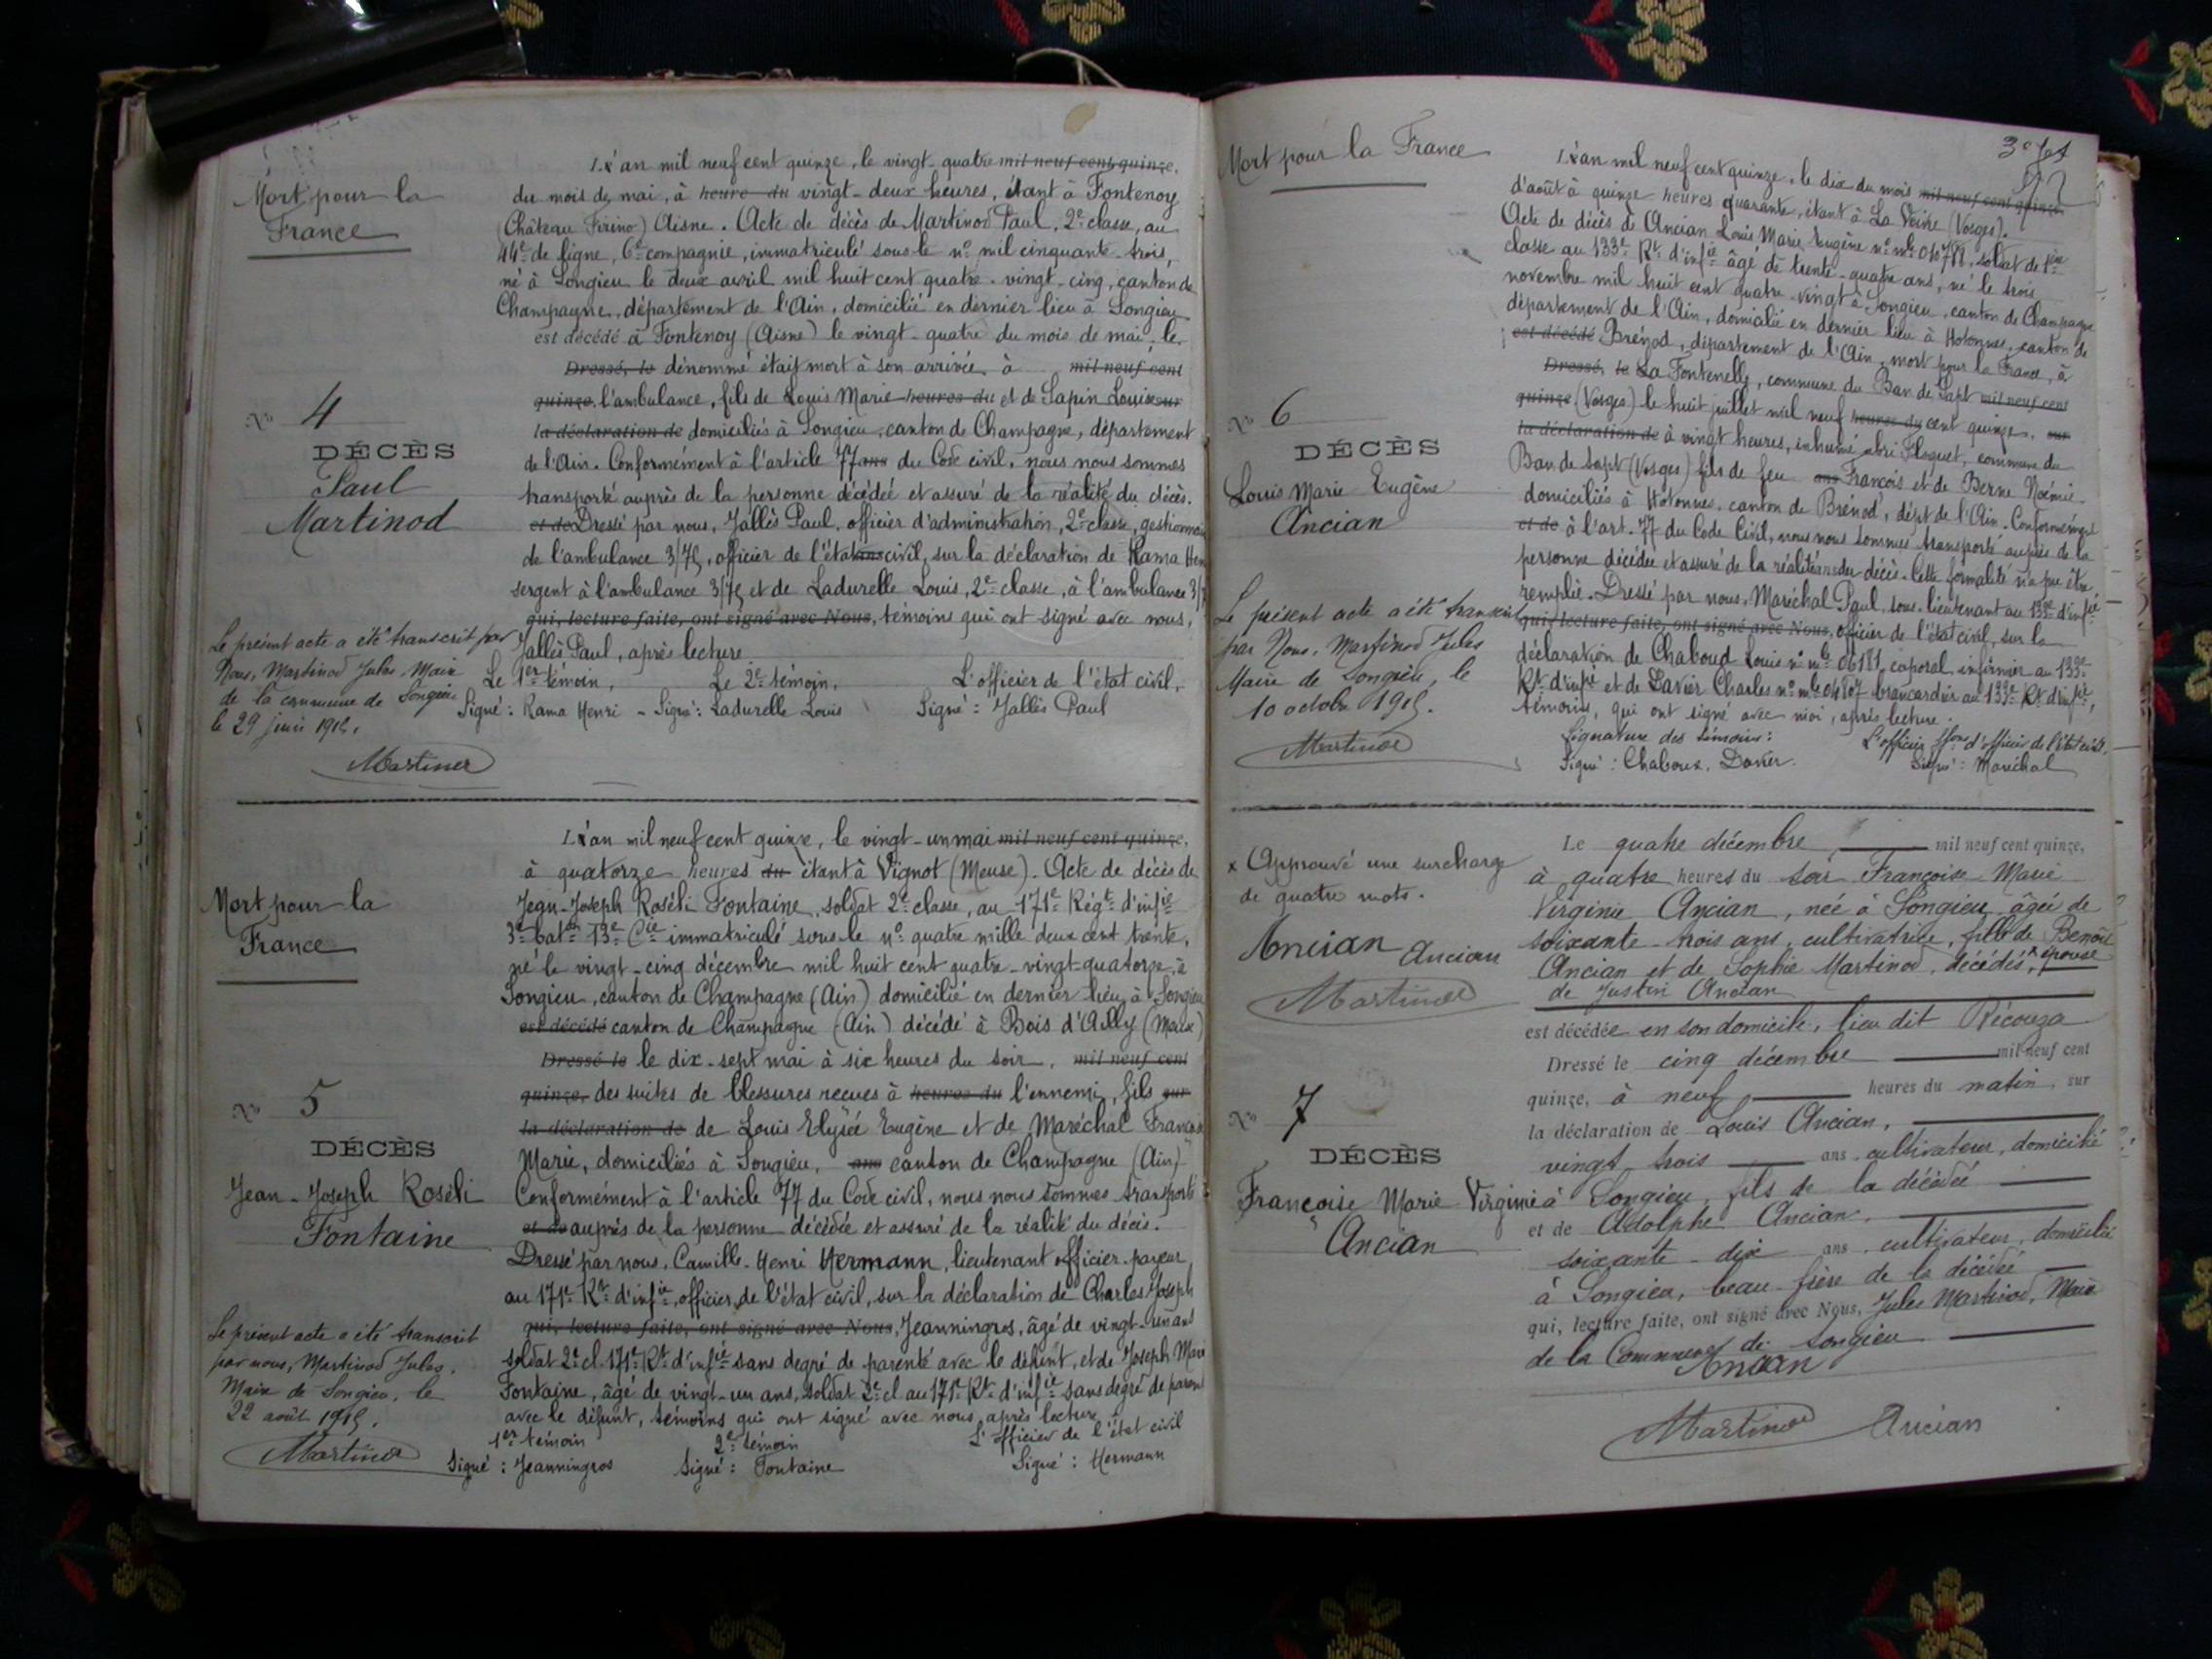 Mort pour la
France
N° 4
DÉCÈS
Paul
Martinod
Le présent acte a été transcrit par
Nous, Martinod Jules, Maire
de la commune de Songieu
le 29 juin 1915.
Martinod
L'an mil neuf cent quinze, le vingt-quatre mil neuf cent quinze,
du mois de mai, à heure du vingt-deux heures, étant à Fontenoy
(Château Firino) Aisne. Acte de décès de Martinod Paul, 2e classe, au
44e de ligne, 6e compagnie, immatriculé sous le n° mil cinquante-trois,
né à Songieu le deux avril mil huit cent quatre-vingt-cinq, canton de
Champagne, département de l'Ain, domicilié en dernier lieu à Songieu
est décédé à Fontenoy (Aisne) le vingt-quatre du mois de mai, le
Dressé, le dénommé était mort à son arrivée à mil neuf cent
quinze, l'ambulance, fils de Louis Marie heures du et de Sapin Louise sur
la déclaration de domiciliés à Songieu, canton de Champagne, département
de l'Ain. Conformément à l'article 77 ans du Code civil, nous nous sommes
transporté auprès de la personne décédée et assuré de la réalité du décès.
et de Dressé par nous, Jallès Paul, officier d'administration, 2e classe, gestionnaire
de l'ambulance 3/75, officier de l'état ans civil, sur la déclaration de Rama Hen
sergent à l'ambulance 3/75 et de Ladurelle Louis, 2e classe, à l'ambulance 3/7
qui, lecture faite, ont signé avec Nous, témoins qui ont signé avec nous,
Jallès Paul, après lecture
Le 1er témoin, Le 2e témoin, L'officier de l'état civil,
Signé : Rama Henri - Signé : Ladurelle Louis Signé : Jallès Paul
Mort pour la
France
N° 5
DÉCÈS
Jean-Joseph Roséli
Fontaine
Le présent acte a été transcrit
par nous, Martinod Jules,
Maire de Songieu, le
22 août 1915.
Martinod
L'an mil neuf cent quinze, le vingt-un mai mil neuf cent quinze,
à quatorze heures du étant à Vignot (Meuse). Acte de décès de
Jean-Joseph Roséli Fontaine, soldat 2e classe, au 171e Régt d'infie
3e baton 13e Cie immatriculé sous le n° quatre mille deux cent trente,
né le vingt-cinq décembre mil huit cent quatre-vingt-quatorze, à
Songieu, canton de Champagne (Ain) domicilié en dernier lieu à Songieu
est décédé canton de Champagne (Ain) décédé à Bois d'Ailly (Meuse)
Dressé le le dix-sept mai à six heures du soir, mil neuf cent
quinze, des suites de blessures reçues à heures du l'ennemi, fils sur
la déclaration de de Louis Elysée Eugène et de Maréchal Françoise
Marie, domiciliés à Songieu, ans canton de Champagne (Ain)
Conformément à l'article 77 du Code civil, nous nous sommes transporté
et de auprès de la personne décédée et assuré de la réalité du décès.
Dressé par nous, Camille-Henri Hermann, lieutenant officier-payeur
au 171e Rt d'infie, officier de l'état civil, sur la déclaration de Charles Joseph
qui, lecture faite, ont signé avec Nous, Jeanningros, âgé de vingt-un ans
soldat 2e cl. 171e Rt d'infie sans degré de parenté avec le défunt, et de Joseph Marie
Fontaine, âgé de vingt-un ans, soldat 2e cl. au 171e Rt d'infie sans degré de paren
avec le défunt, témoins qui ont signé avec nous après lecture.
1er témoin 2e témoin L'officier de l'état civil
Signé : Jeanningros Signé : Fontaine Signé : Hermann
Mort pour la France
N° 6
DÉCÈS
Louis Marie Eugène
Ancian
Le présent acte a été transcrit
par Nous, Martinod Jules
Maire de Songieu, le
10 octobre 1915.
Martinod
L'an mil neuf cent quinze, le dix du mois mil neuf cent quinze,
d'août à quinze heures quarante, étant à La Voivre (Vosges).
Acte de décès de Ancian Louis Marie Eugène n° mle soldat de 1ère
classe au 133e Rt d'infie âgé de trente-quatre ans, né le trois
novembre mil huit cent quatre-vingt à Songieu, canton de Champagne
département de l'Ain, domicilié en dernier lieu à Hotonnes, canton de
est décédé Brénod, département de l'Ain, mort pour la France, à
Dressé, le La Fontenelle, commune du Ban de Sapt mil neuf cent
quinze (Vosges) le huit juillet mil neuf heures du cent quinze, sur
la déclaration de à vingt heures, inhumé abri Floquet, commune du
Ban de Sapt (Vosges) fils de feu ans François et de Berne Noémie
domiciliés à Hotonnes, canton de Brénod, dépt de l'Ain. Conformément
et de à l'art. 77 du Code Civil, nous nous sommes transporté auprès de la
personne décédée et assuré de la réalité ans du décès. Cette formalité n'a pu être
remplie. Dressé par nous, Maréchal Paul, sous-lieutenant au 133e d'infie
qui, lecture faite, ont signé avec Nous, officier de l'état civil, sur la
déclaration de Chaboud Louis n° mle 06181, caporal infirmier au 133e
Rt d'infie et de Davier Charles n° mle 04807 brancardier au 133e Rt d'infie,
témoins, qui ont signé avec moi, après lecture.
Signature des témoins : L'officier ffons d'officier de l'état civil,
Signé : Chaboux, Davier. Signé : Maréchal
x Approuvé une surcharge
de quatre mots.
Ancian Ancian
Martinod
N° 7
DÉCÈS
Françoise Marie Virginie
Ancian
Le quatre décembre mil neuf cent quinze,
à quatre heures du soir Françoise Marie
Virginie Ancian, née à Songieu âgée de
soixante-trois ans, cultivatrice, fille de Benoît
Ancian et de Sophie Martinod, décédés, x épouse
de Justin Ancian
est décédée en son domicile, lieu dit Récouza
Dressé le cinq décembre mil neuf cent
quinze, à neuf heures du matin, sur
la déclaration de Louis Ancian,
vingt-trois ans, cultivateur, domicilié
à Songieu, fils de la décédée
et de Adolphe Ancian,
soixante-dix ans, cultivateur, domicilié
à Songieu, beau-frère de la décédée
qui, lecture faite, ont signé avec Nous, Jules Martinod, Maire
de la Commune de Songieu
Ancian
Martinod Ancian